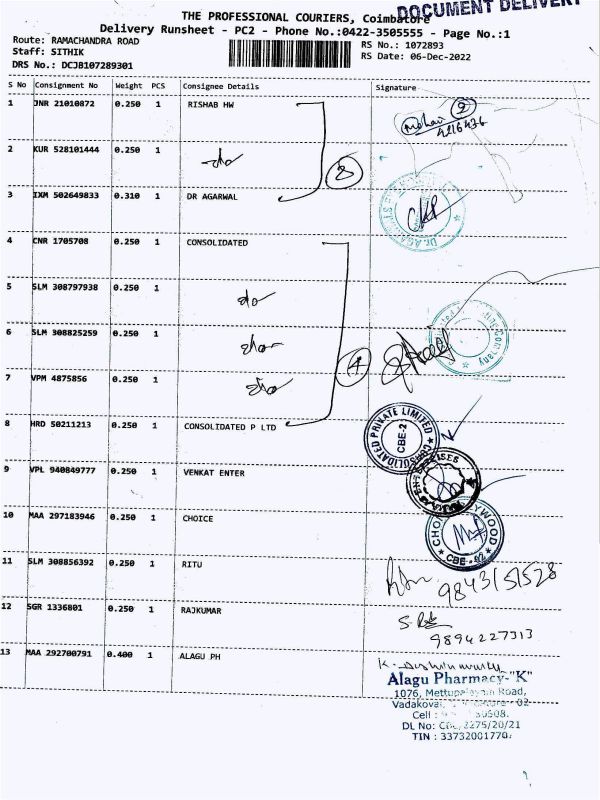 DOCUMENT DELIVERY
THE PROFESSIONAL COURIERS, Coimbatore
Delivery Runsheet - PC2 - Phone No.:0422-3505555 - Page No.:1
Route: RAMACHANDRA ROAD
Staff: SITHIK
DRS No.: DCJB107289301
RS No.: 1072893
RS Date: 06-Dec-2022
S No Consignment No Weight PCS Consignee Details Signature
1 JNR 21010872 0.250 1 RISHAB HW
4216436
2 KUR 528101444 0.250 1
3
3 IXM 502649833 0.310 1 DR AGARWAL
4 CNR 1705708 0.250 1 CONSOLIDATED
5 SLM 308797938 0.250 1
6 SLM 308825259 0.250 1
7 VPM 4875856 0.250 1
4
8 HRD 50211213 0.250 1 CONSOLIDATED P LTD
CONSOLIDATED PRIVATE LIMITED
CBE-2
9 VPL 940849777 0.250 1 VENKAT ENTER
10 MAA 297183946 0.250 1 CHOICE
CBE - 02
11 SLM 308856392 0.250 1 RITU
9843151528
12 SGR 1336801 0.250 1 RAJKUMAR
9894227313
13 MAA 292700791 0.400 1 ALAGU PH
Alagu Pharmacy-"K"
1076, Mettupalayam Road,
Vadakovai, 02
Cell :
DL No: 2275/20/21
TIN : 33732001770